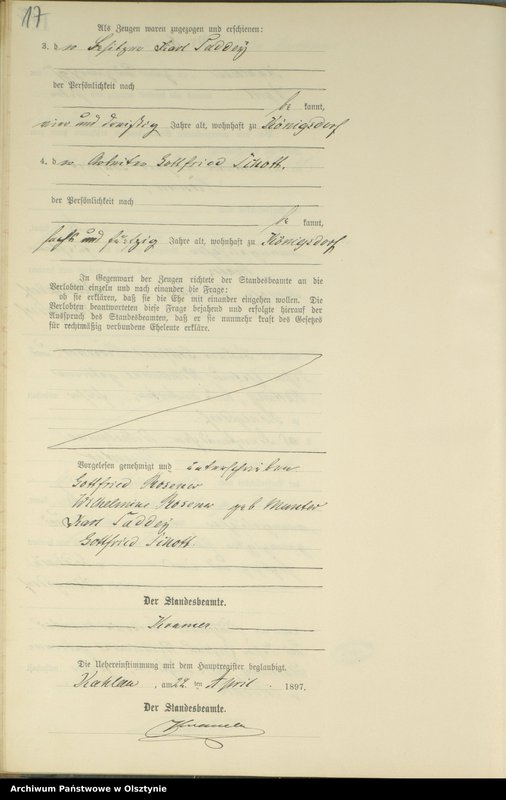 17
Als Zeugen waren zugezogen und erschienen:
3. der Besitzer Karl Taddey
der Persönlichkeit nach
be kannt,
vier und dreißig Jahre alt, wohnhaft zu Königsdorf
4. der Arbeiter Gottfried Schott.
der Persönlichkeit nach
be kannt,
sechs und fünfzig Jahre alt, wohnhaft zu Königsdorf
In Gegenwart der Zeugen richtete der Standesbeamte an die
Verlobten einzeln und nach einander die Frage:
ob sie erklären, daß sie die Ehe mit einander eingehen wollen. Die
Verlobten beantworteten diese Frage bejahend und erfolgte hierauf der
Ausspruch des Standesbeamten, daß er sie nunmehr kraft des Gesetzes
für rechtmäßig verbundene Eheleute erkläre.
Vorgelesen genehmigt und unterschrieben
Gottfried Rosener
Wilhelmine Rosener geb Munter
Karl Taddey
Gottfried Schott.
Der Standesbeamte.
Kramer
Die Uebereinstimmung mit dem Hauptregister beglaubigt.
Kahlau, am 22. ten April. 1897.
Der Standesbeamte.
Archiwum Państwowe w Olsztynie